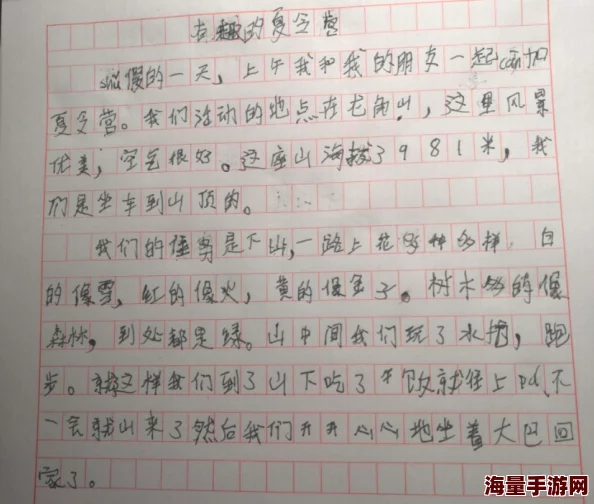 有趣的夏令营
shǔ假的一天，上午我和我的朋友一起cān加
夏令营。我们活动的地点在龙角山，这里风景
优美，空气很好。这座山海拔了981米，我
们是坐车到山顶的。
我们的任务是下山，一路上花多种多样 白
的像雪，红的像火，黄的像金子。树木多的像
森林，到处都是绿。山中间我们玩了水枪，跑
步。就这样我们到了山下吃了午饭就往上pá，不
一会就山来了然后我们开开心心地坐着大巴回
家了。
海量手游网